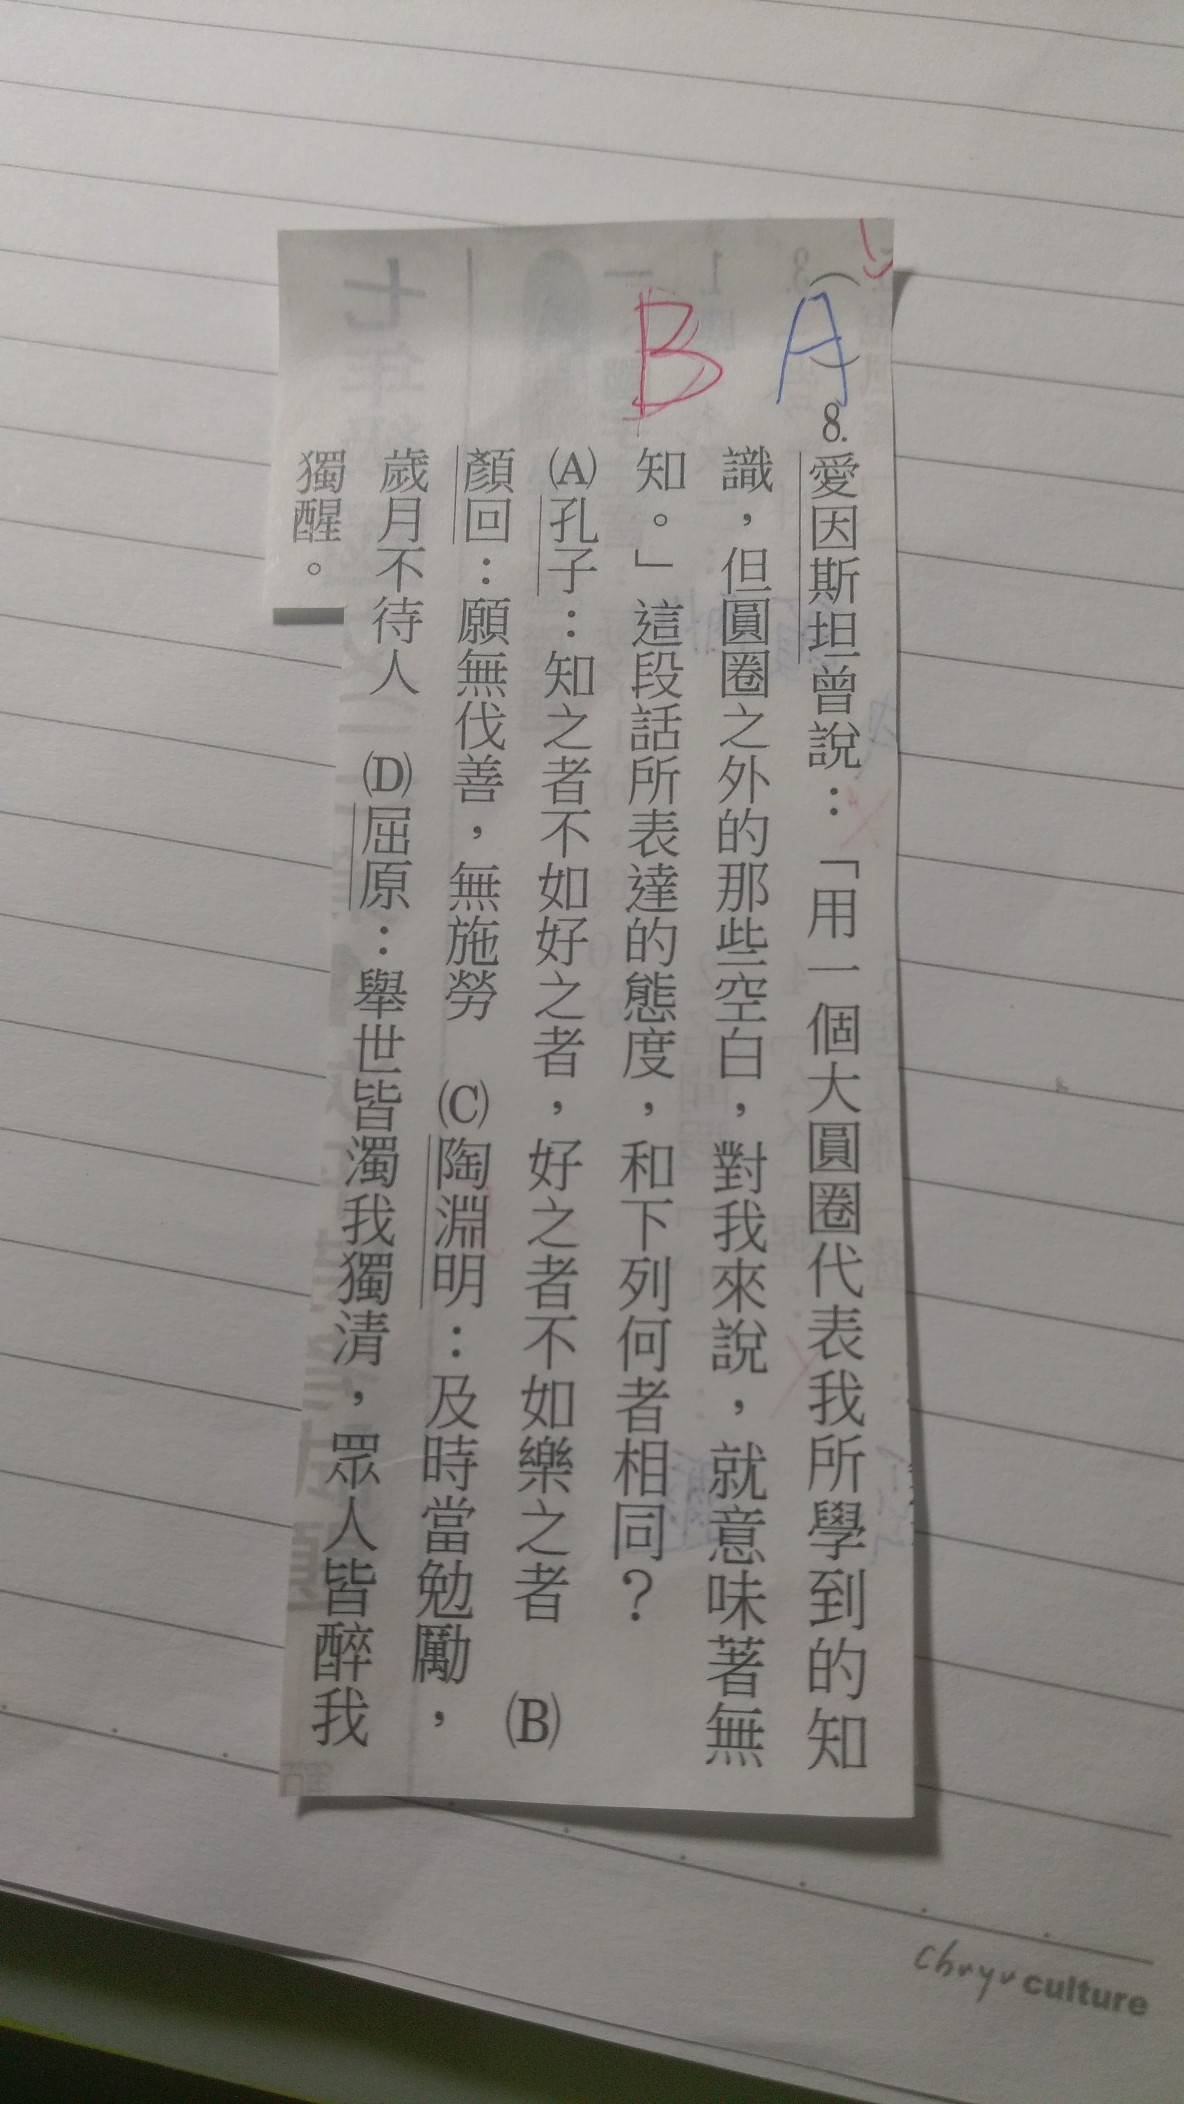 (A)8.愛因斯坦曾說：「用一個大圓圈代表我所學到的知
識，但圓圈之外的那些空白，對我來說，就意味著無
知。」這段話所表達的態度，和下列何者相同？
B
(A)孔子：知之者不如好之者，好之者不如樂之者　(B)
顏回：願無伐善，無施勞　(C)陶淵明：及時當勉勵，
歲月不待人　(D)屈原：舉世皆濁我獨清，眾人皆醉我
獨醒。
culture